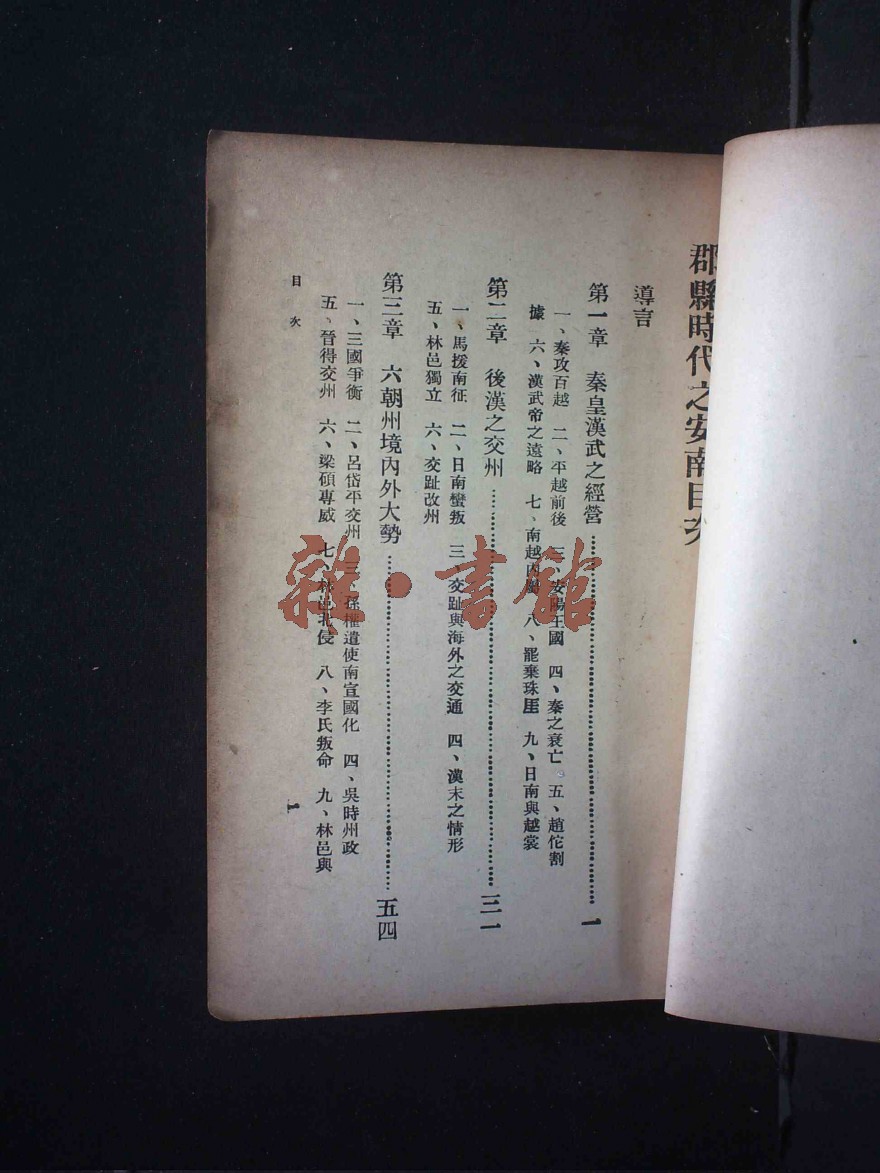 郡縣時代之安南目次
導言
第一章　秦皇漢武之經營……一
一、秦攻百越　二、平越前後　三、安陽王國　四、秦之衰亡　五、趙佗割
據　六、漢武帝之遠略　七、南越內屬　八、罷棄珠厓　九、日南與越裳
第二章　後漢之交州……三一
一、馬援南征　二、日南蠻叛　三、交趾與海外之交通　四、漢末之情形
五、林邑獨立　六、交趾改州
第三章　六朝州境內外大勢……五四
一、三國爭衡　二、呂岱平交州　三、孫權遣使南宣國化　四、吳時州政
五、晉得交州　六、梁碩專威　七、林邑北侵　八、李氏叛命　九、林邑與
目次
一
雜·書館